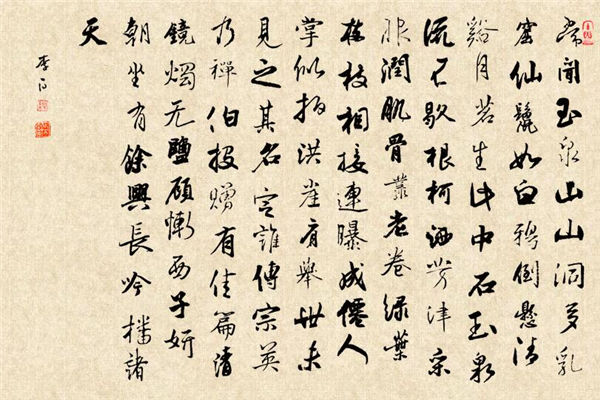 常聞玉泉山山洞多乳
窟仙鬣如白鴉倒懸清
谿月茗生此中石玉泉
流不歇根柯洒芳津采
服潤肌骨叢老卷綠葉
枝枝相接連曝成僊人
掌似拍洪崖肩舉世未
見之其名定誰傳宗英
乃禪伯投贈有佳篇清
鏡燭无鹽顧慚西子妍
朝坐有餘興長吟播諸
天
李白